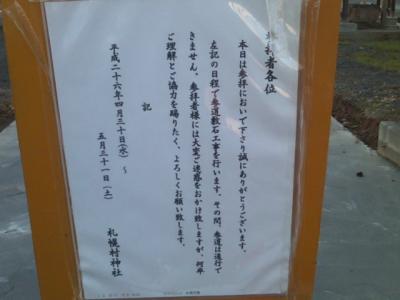 参拝者各位
本日は参拝においで下さり誠にありがとうございます。
左記の日程で参道敷石工事を行います。その間、参道は通行で
きません。参拝者様には大変ご迷惑をおかけ致しますが、何卒
ご理解とご協力を賜りたく、よろしくお願い致します。
記
平成二十六年四月三十日(水)～
五月三十一日(土)
札幌村神社